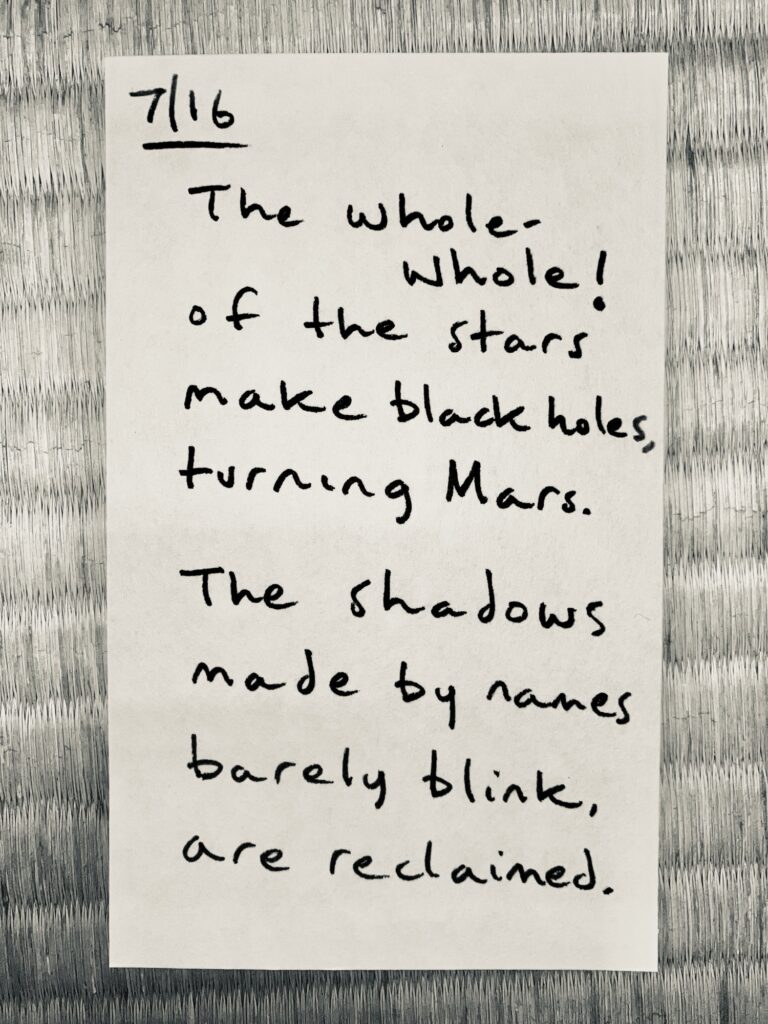 7/16
The whole-
whole!
of the stars
make black holes,
turning Mars.
The shadows
made by names
barely blink,
are reclaimed.